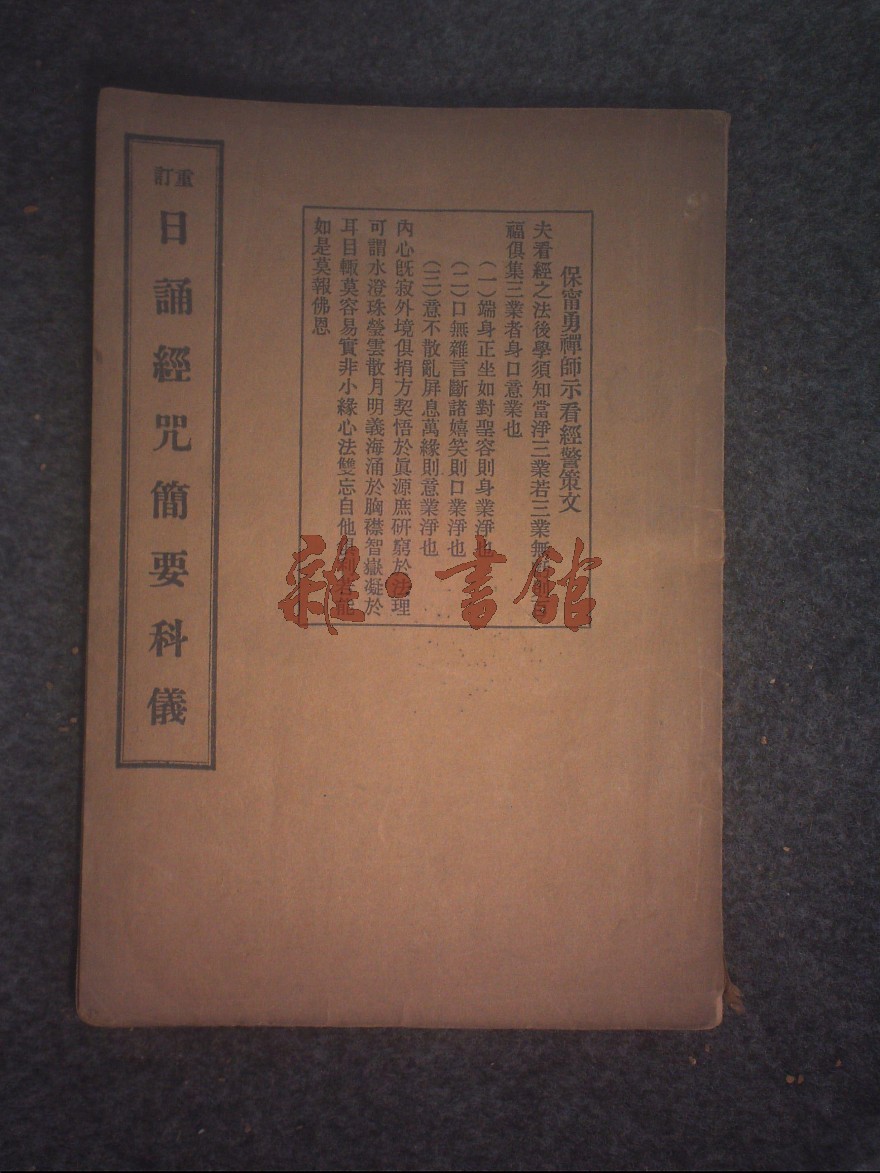 重訂
日誦經咒簡要科儀
保甯勇禪師示看經警策文
夫看經之法後學須知當淨三業若三業無
福俱集三業者身口意業也
(一)端身正坐如對聖容則身業淨也
(二)口無雜言斷諸嬉笑則口業淨也
(三)意不散亂屏息萬緣則意業淨也
內心旣寂外境俱捐方契悟於眞源庶研窮於法理
可謂水澄珠瑩雲散月明義海涌於胸襟智嶽凝於
耳目輙莫容易實非小緣心法雙忘自他
如是莫報佛恩
雜·書館